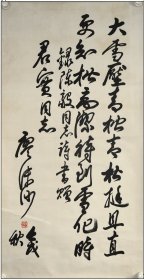 大雪壓青松青松挺且直
要知松高潔待到雪化時
錄陳毅同志詩書贈
君實同志
廖沫沙
秋